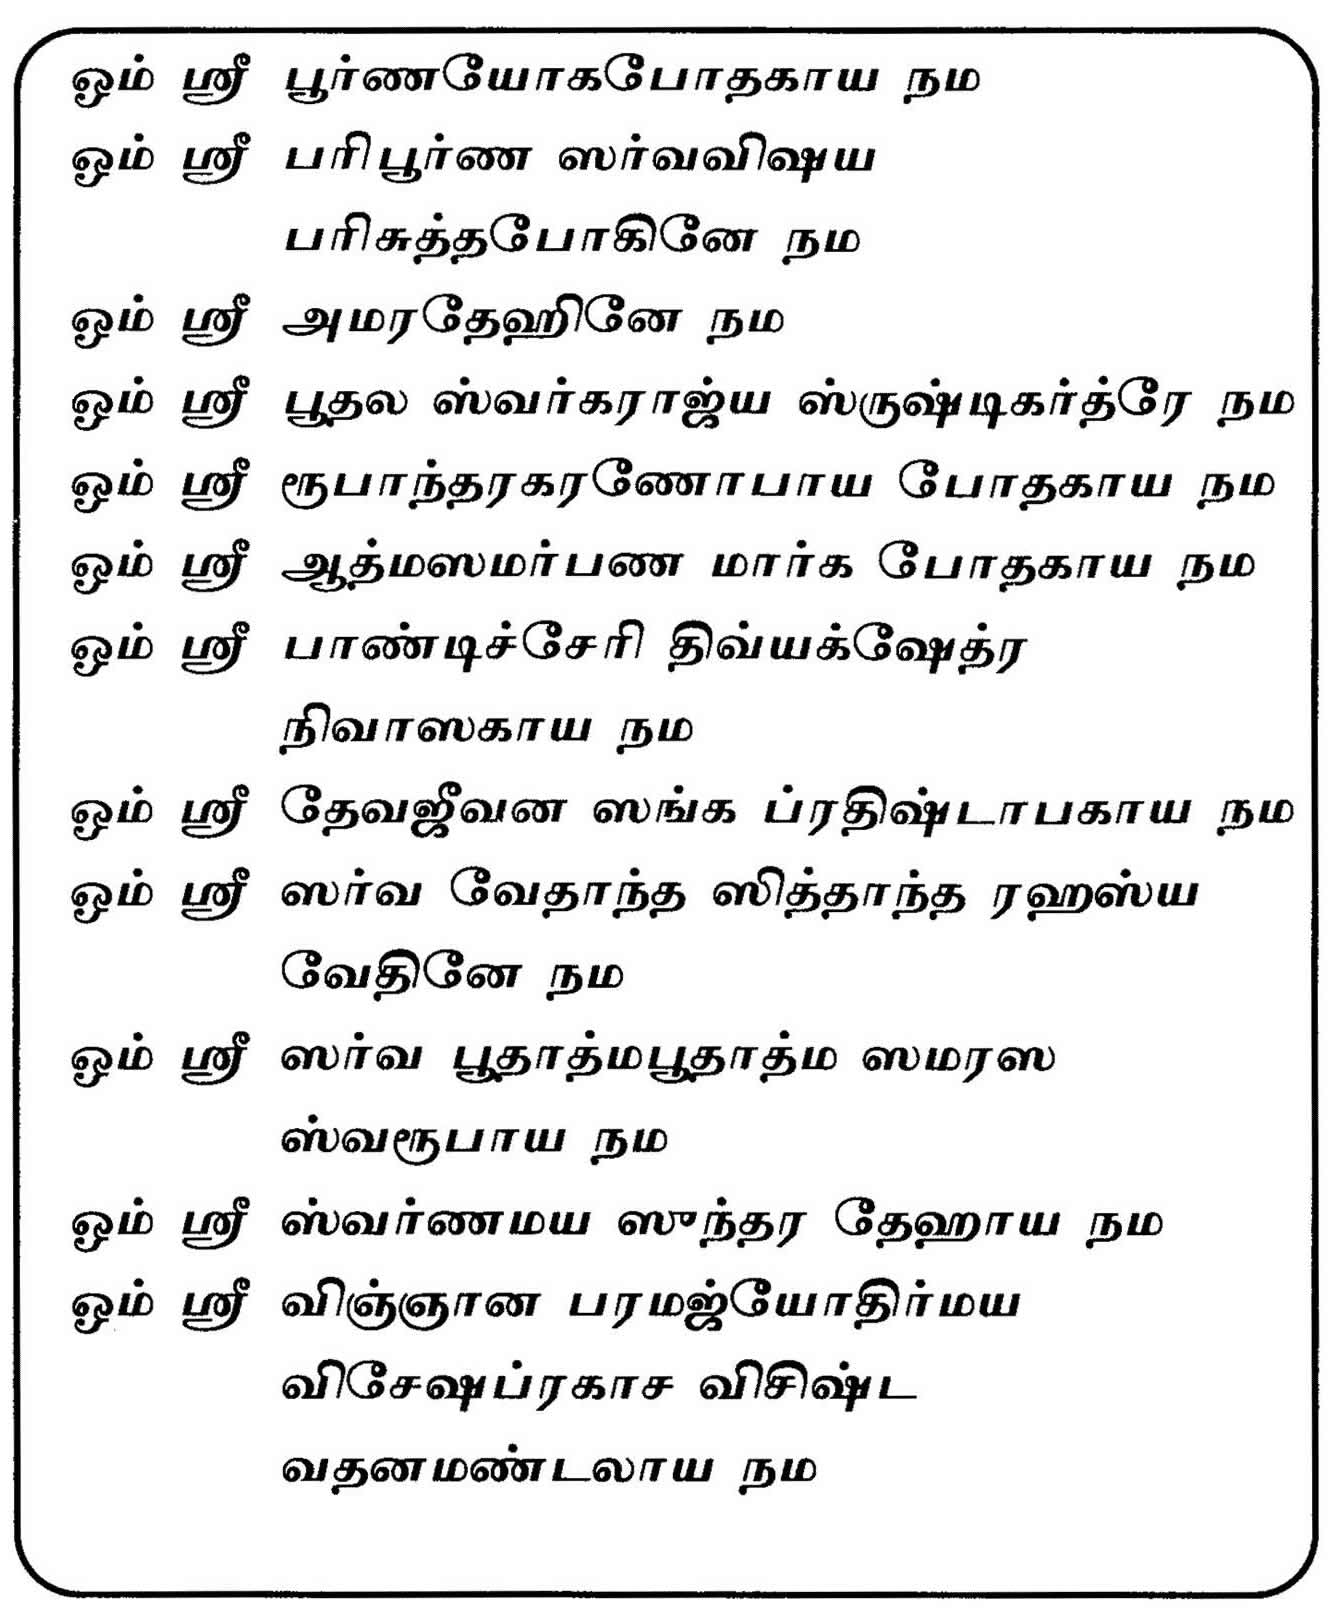 ஓம் ஸ்ரீ பூர்ணயோகபோதகாய நம
ஓம் ஸ்ரீ பரிபூர்ண ஸர்வவிஷய
பரிசுத்தபோகினே நம
ஓம் ஸ்ரீ அமரதேஹினே நம
ஓம் ஸ்ரீ பூதல ஸ்வர்கராஜ்ய ஸ்ருஷ்டிகர்த்ரே நம
ஓம் ஸ்ரீ ரூபாந்தரகரணோபாய போதகாய நம
ஓம் ஸ்ரீ ஆத்மஸமர்பண மார்க போதகாய நம
ஓம் ஸ்ரீ பாண்டிச்சேரி திவ்யக்ஷேத்ர
நிவாஸகாய நம
ஓம் ஸ்ரீ தேவஜீவன ஸங்க ப்ரதிஷ்டாபகாய நம
ஓம் ஸ்ரீ ஸர்வ வேதாந்த ஸித்தாந்த ரஹஸ்ய
வேதினே நம
ஓம் ஸ்ரீ ஸர்வ பூதாத்மபூதாத்ம ஸமரஸ
ஸ்வரூபாய நம
ஓம் ஸ்ரீ ஸ்வர்ணமய ஸுந்தர தேஹாய நம
ஓம் ஸ்ரீ விஞ்ஞான பரமஜ்யோதிர்மய
விசேஷப்ரகாச விசிஷ்ட
வதனமண்டலாய நம